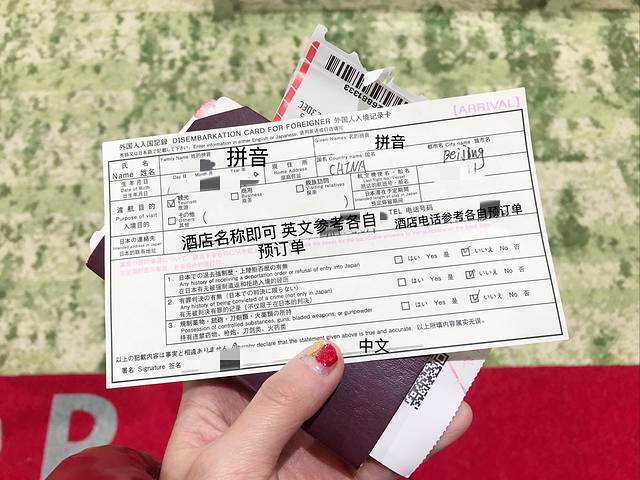 【ARRIVAL】
外国人入国記録 DISEMBARKATION CARD FOR FOREIGNER 外国人入境记录卡
英語又は日本語で記載して下さい。 Enter information in either English or Japanese. 请用英语或日语填写
氏 名
Name 姓名
Family Name 姓的拼音
拼音
Given Names 名的拼音
拼音
生年月日
Date of Birth
出生年月日
Day 日
Month 月
Year 年
現 住 所
Home Address
家庭住址
国名 Country name 国名
CHINA
都市名 City name 城市名
Beijing
渡 航 目 的
Purpose of visit
入境目的
観光
Tourism
旅游
商用
Business
商务
親族訪問
Visiting relatives
探亲
その他
Others
其他
航空機便名・船名
Last flight No./Vessel
抵达的航班号
日本滞在予定期間
Intended length of stay in Japan
预定停留期间
日本の連絡先
Intended address in Japan
日本的联系地址
酒店名称即可 英文参考各自
预订单
TEL 电话号码
酒店电话参考各自预订单
1. 日本での退去強制歴・上陸拒否歴の有無
Any history of receiving a deportation order or refusal of entry into Japan
在日本有无被强制遣返和拒绝入境的经历
はい Yes 是
いいえ No 否
2. 有罪判決の有無（日本での判決に限らない）
Any history of being convicted of a crime (not only in Japan)
有无被判决有罪的记录（不仅限于在日本的判决）
はい Yes 是
いいえ No 否
3. 規制薬物・銃砲・刀剣類・火薬類の所持
Possession of controlled substances, guns, bladed weapons, or gunpowder
持有违禁药物、枪炮、刀剑类、火药类
はい Yes 是
いいえ No 否
以上の記載内容は事実と相違ありません。 I hereby declare that the statement given above is true and accurate. 以上所填内容属实无误。
署名 Signature 签名
中文
P